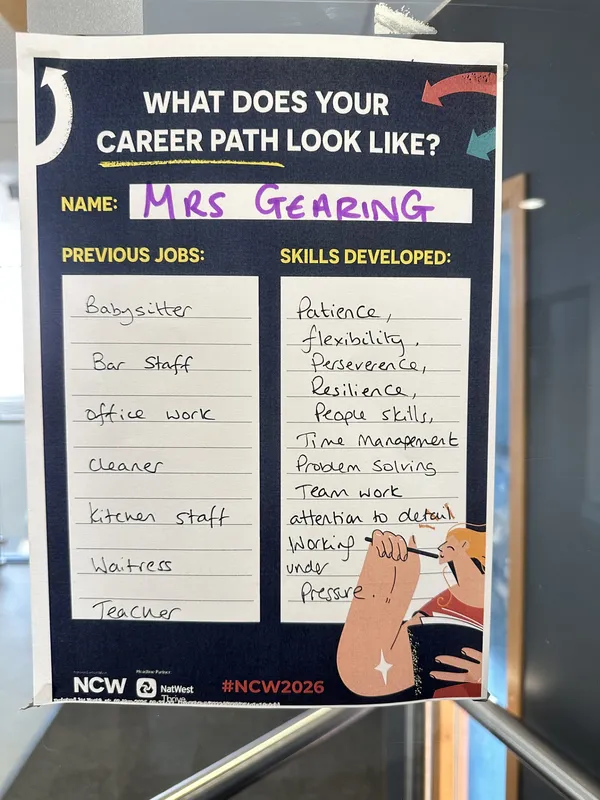 WHAT DOES YOUR
CAREER PATH LOOK LIKE?
NAME: MRS GEARING
PREVIOUS JOBS:
Babysitter
Bar Staff
office work
cleaner
Kitchen staff
Waitress
Teacher
SKILLS DEVELOPED:
Patience,
flexibility,
Perseverence,
Resilience,
People skills,
Time Management
Problem Solving
Team work
attention to detail
Working
under
Pressure.!!
NCW
NatWest
Thrive
#NCW2026